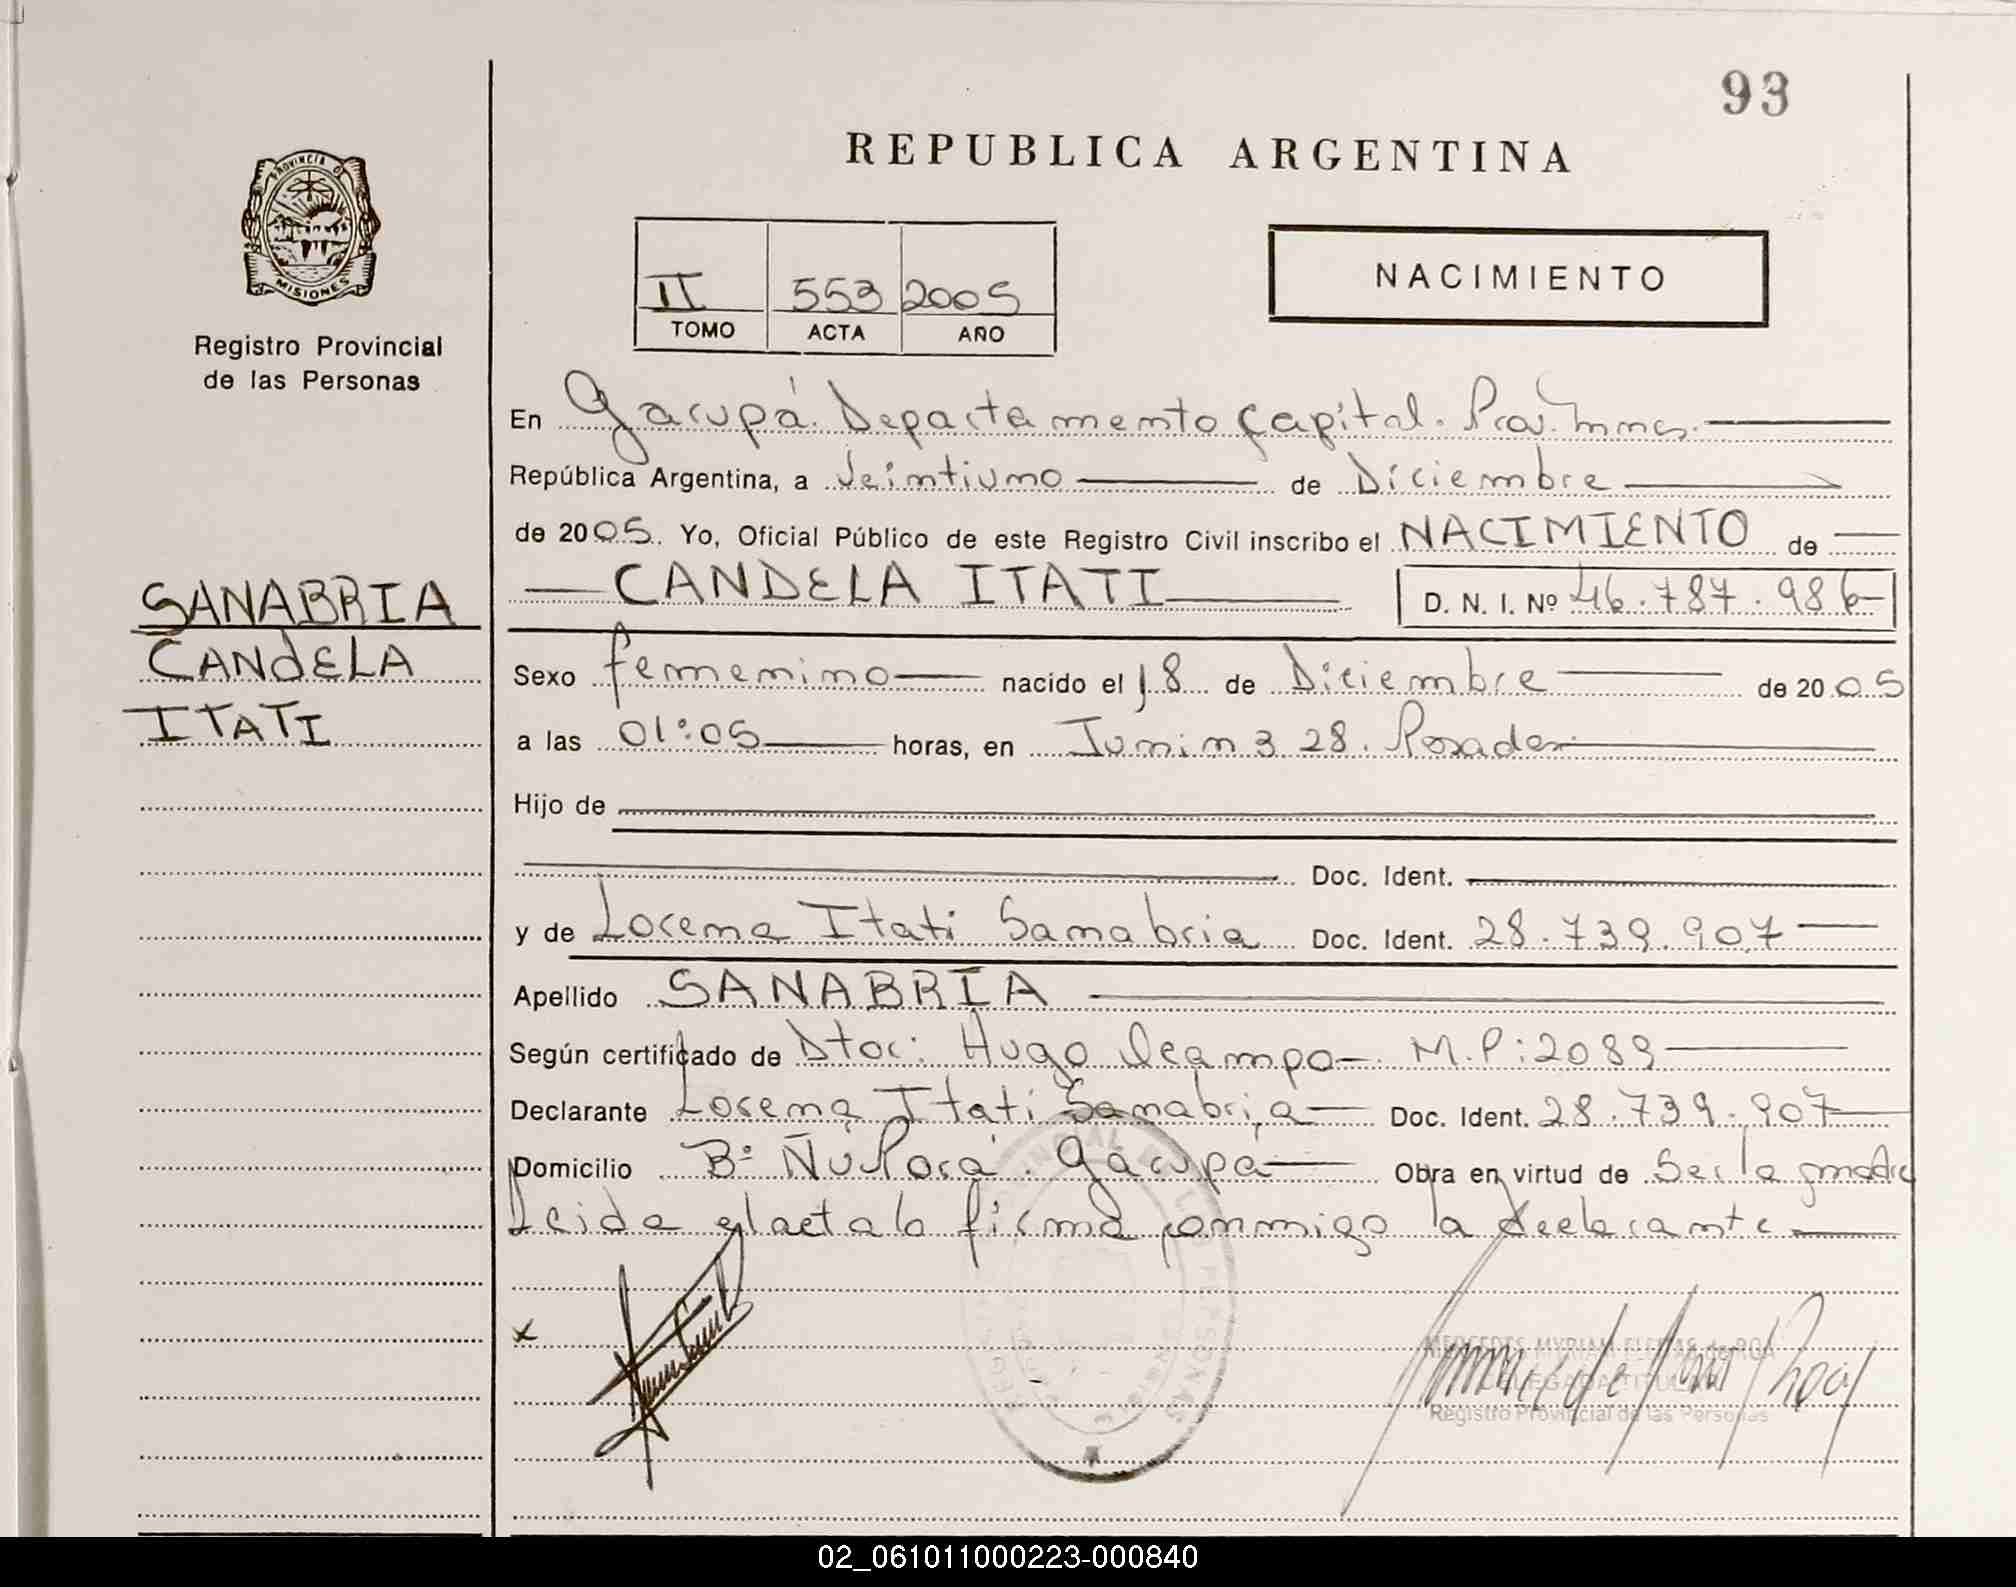 93
REPUBLICA ARGENTINA
PROVINCIA DE
MISIONES
Registro Provincial
de las Personas
II 553 2005
TOMO ACTA AÑO
NACIMIENTO
En Garupá. Departamento Capital. Prov. Mnes.
República Argentina, a Veintiuno de Diciembre
de 2005. Yo, Oficial Público de este Registro Civil inscribo el NACIMIENTO de
CANDELA ITATI D. N. I. Nº 46.787.986
SANABRIA
CANDELA
ITATI
Sexo femenino nacido el 18 de Diciembre de 2005
a las 01:05 horas, en Junin 328. Posadas.
Hijo de
Doc. Ident.
y de Lorena Itati Sanabria Doc. Ident. 28.739.907
Apellido SANABRIA
Según certificado de Dtor: Hugo Ocampo M.P: 2089
Declarante Lorena Itati Sanabria Doc. Ident. 28.739.907
Domicilio Bº Ñu Porá. Garupá Obra en virtud de Ser la madre
Leida el acta la firma conmigo la declarante
x
MERCEDES MYRIAM FLEITAS de ROA
DELEGADA TITULAR
Registro Provincial de las Personas
02_061011000223-000840